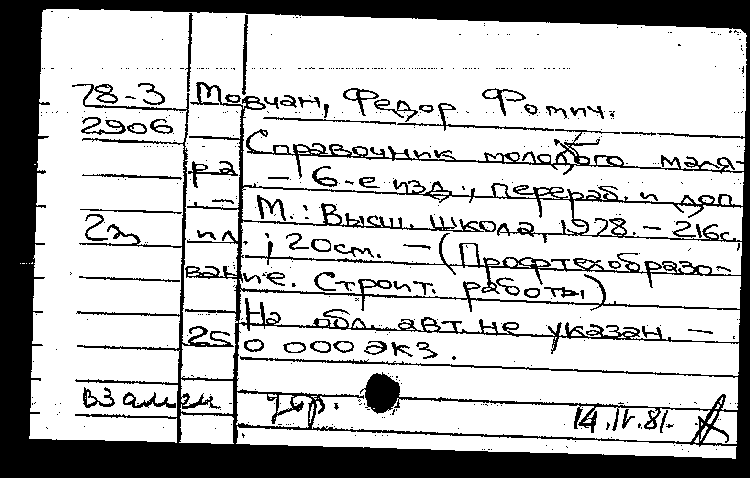 78-3 Мовчан, Федор Фомич.
2906
Справочник молодого маля-
ра. - 6-е изд., перераб. и доп.
- М.: Высш. школа, 1978. - 216с.,
2э ил.; 20см. - (Профтехобразо-
вание. Строит. работы)
На обл. авт. не указан. -
250 000 экз.
взамен
14.IV.81.